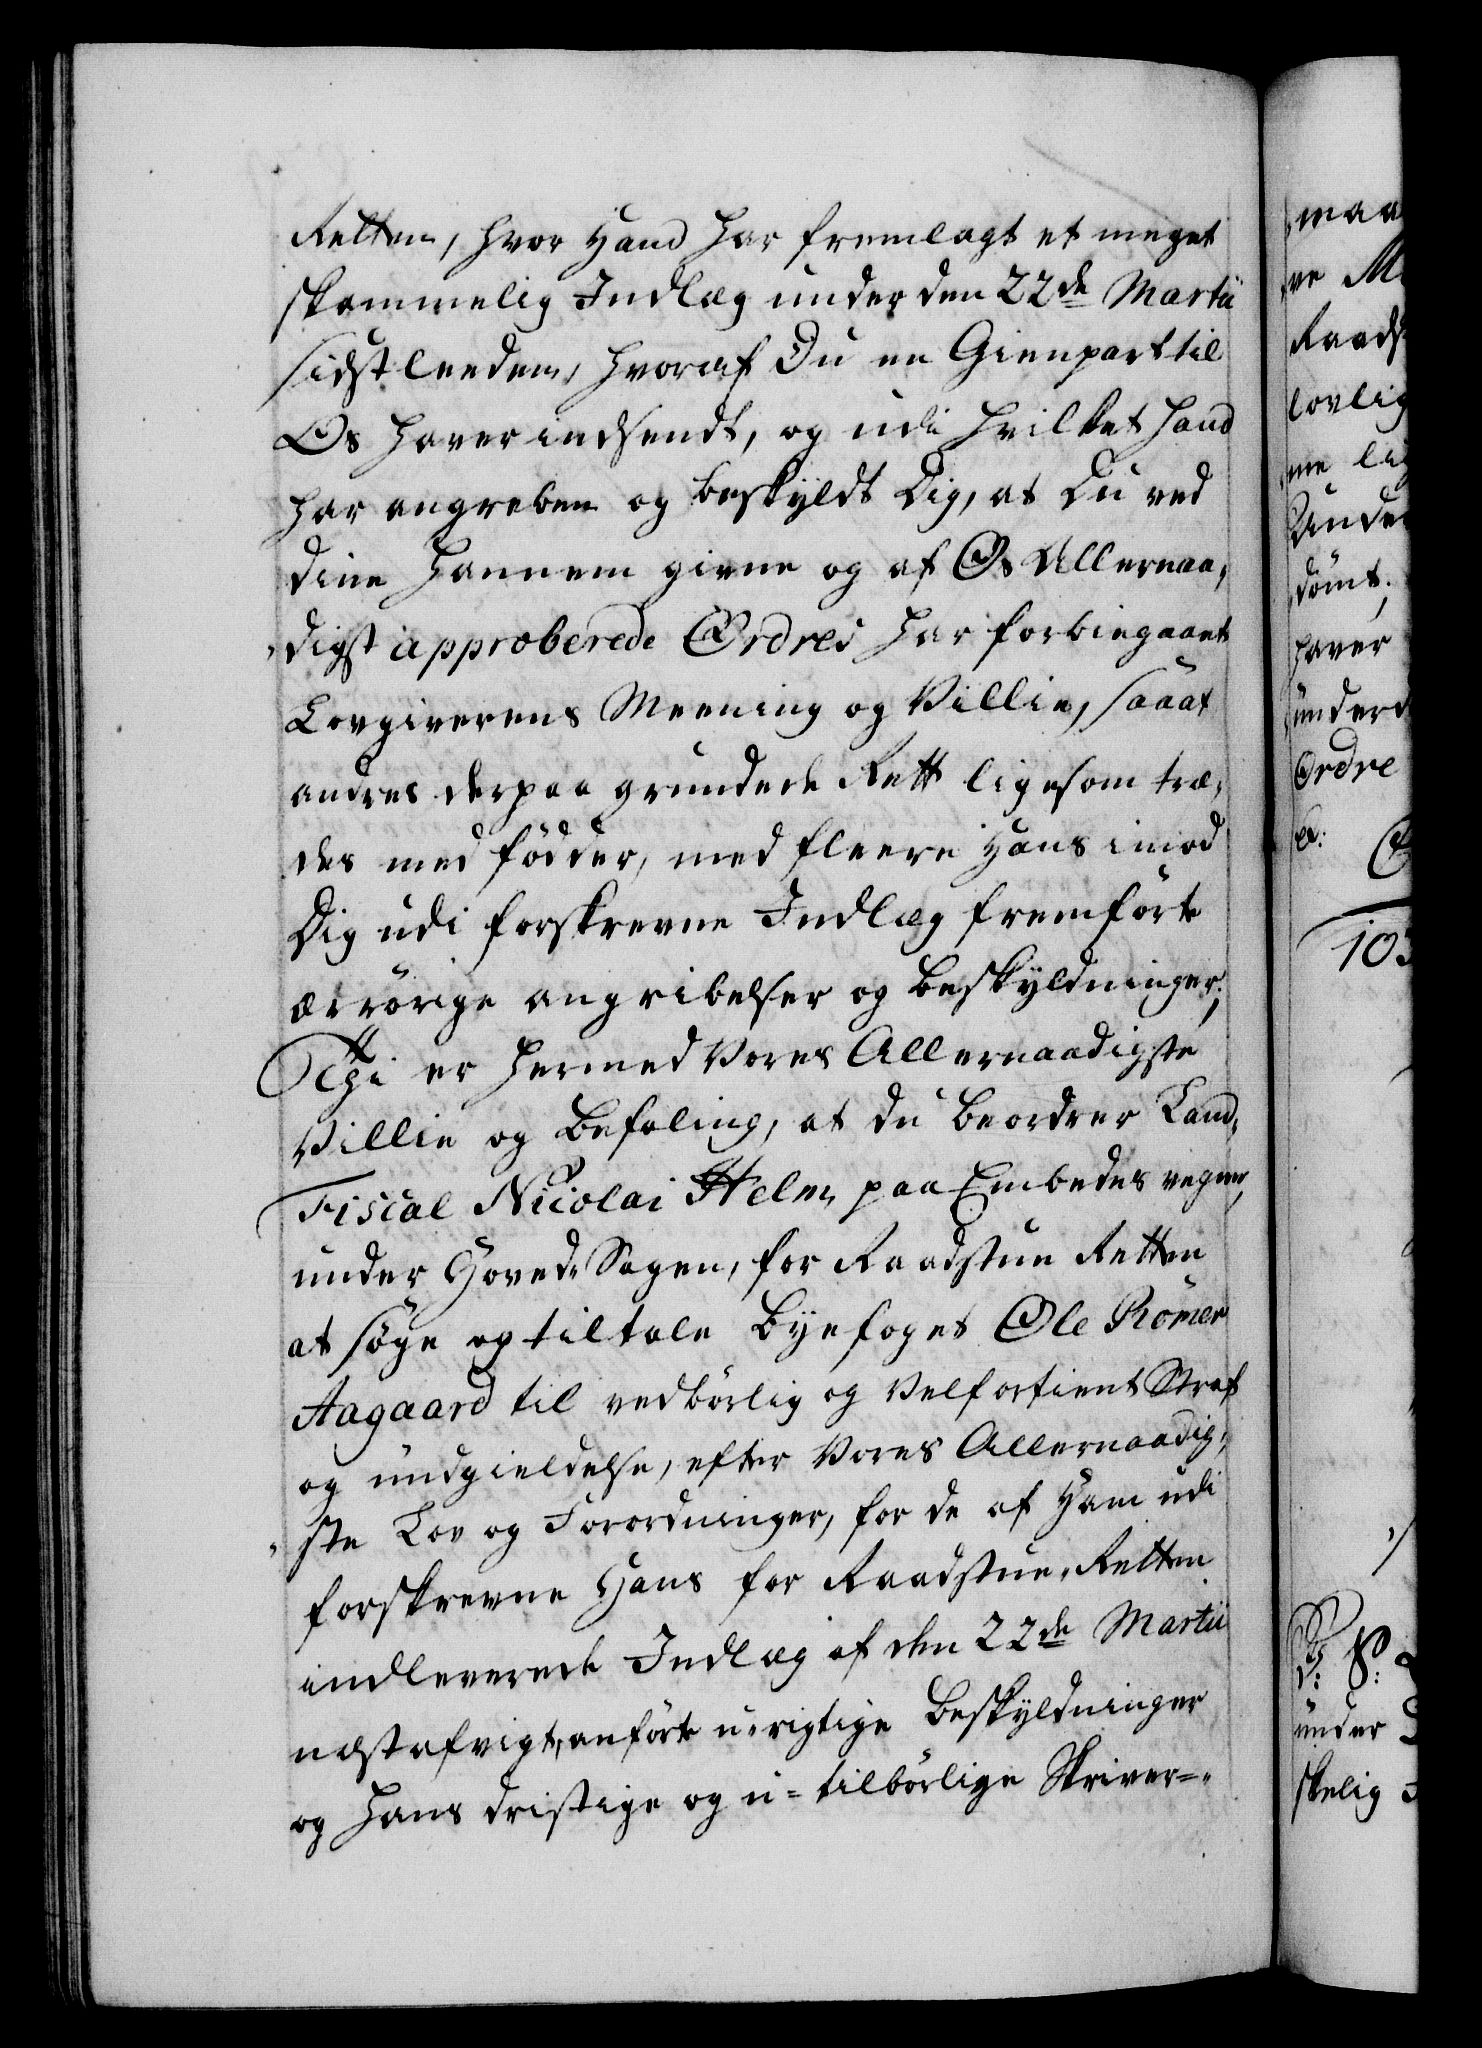 Retten, hvor Hand har fremlagt et meget
skammelig Indlæg under den 22de Martii
sidstleeden, hvoraf Du en Gienpart til
Os haver indsendt, og udi hvilket hand
har angreben og beskyldt Dig, at Du ved
dine hannem givne og af Os Allernaa„
„digst approberede Ordres har forbiegaaet
Lovgiverens Meening og Villie, saaat
andres derpaa grundede Rett ligesom træ„
des med fødder, med fleere Hans imod
Dig udi forskrevne Indlæg fremførte
ærrørige angribelser og beskyldninger;
Thi er hermed Vores Allernaadigste
Villie og Befaling, at du beordrer Land„
Fiscal Nicolai Helm, paa Embedes vegne,
under Hoved-Sagen, for Raadstue Retten
at søge og tiltale Byefoget Ole Rømer
Aagaard til vedbørlig og velfortient Straf
og undgieldelse, efter Vores Allernaadig„
„ste Lov og Forordninger, for de af Ham udi
forskrevne Hans for Raadstue-Retten
indleverede Indlæg af den 22de Martii
næstafvigt, anførte u-rigtige Beskyldninger
og hans dristige og u=tilbørlige Skriver=„
maa
ve M
Raads
lovlig
me lig
Under
dømt;
haver
underd
Ordre
103
under
skelig